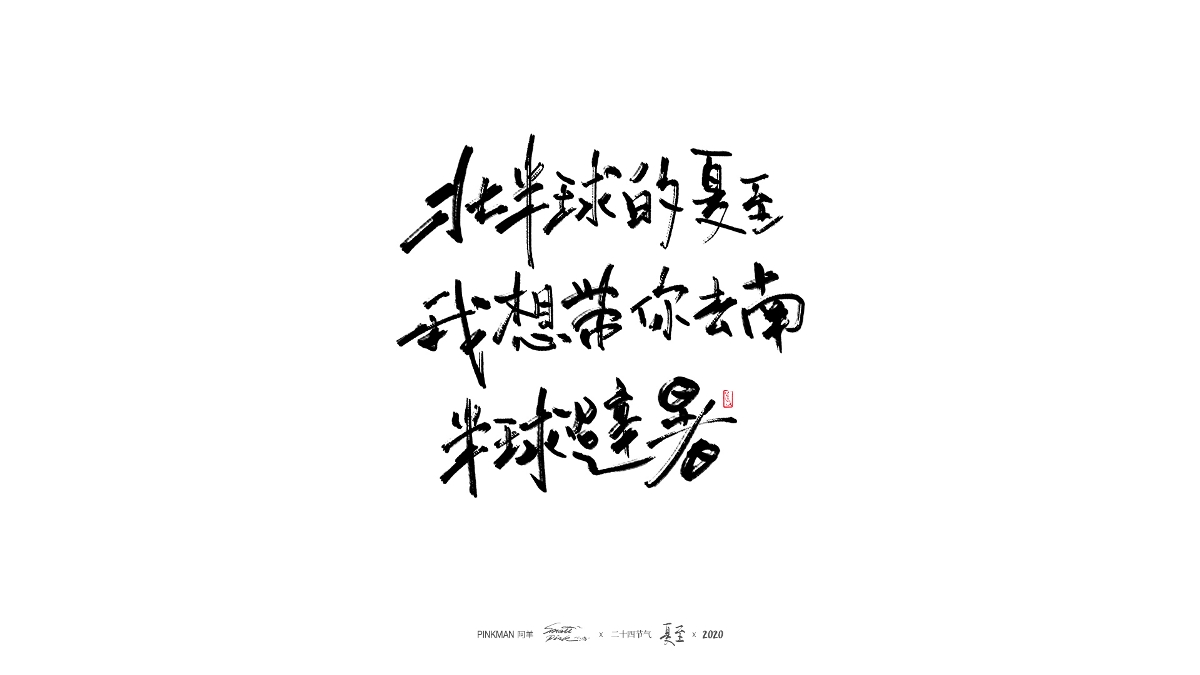 北半球的夏至
我想带你去南
半球避暑
PINKMAN 阿羊 x 二十四节气 夏至 x 2020